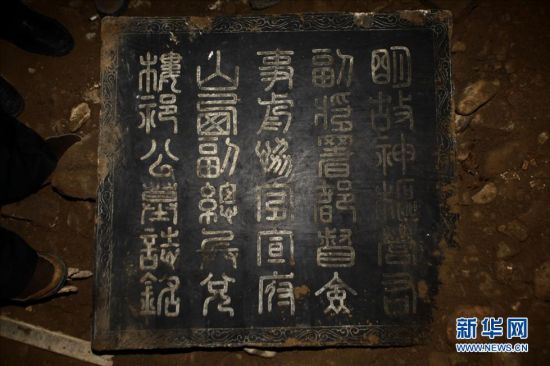 明故神樞營右
副將署都督僉
事前協守宣府
山西副總兵兌
樓祁公墓誌銘
新华网
WWW.NEWS.CN